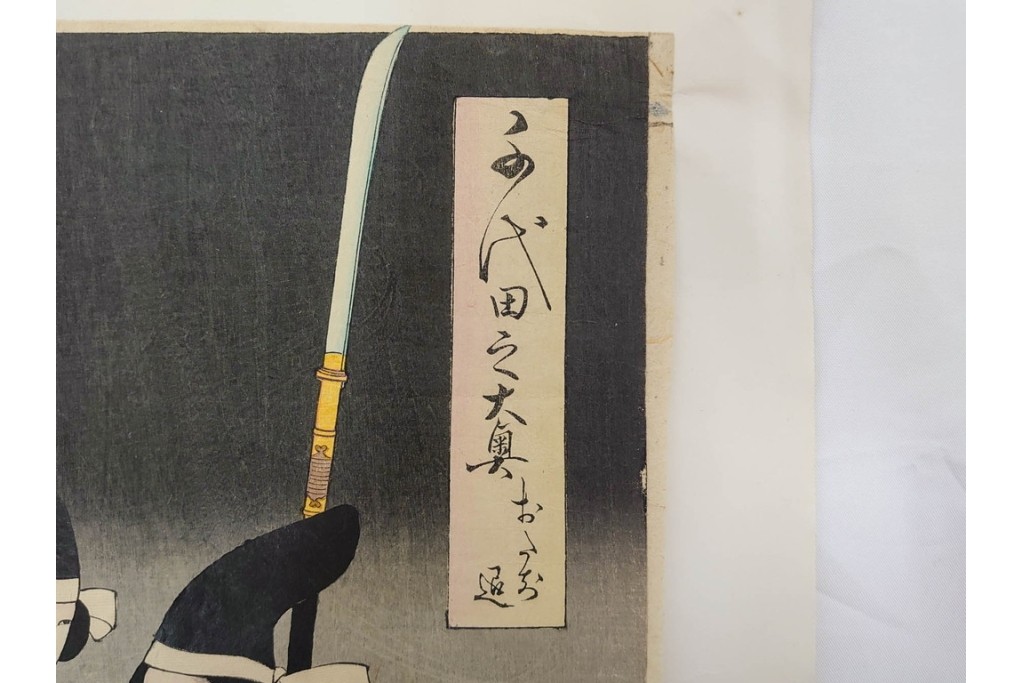 千代田之大奥
お
退